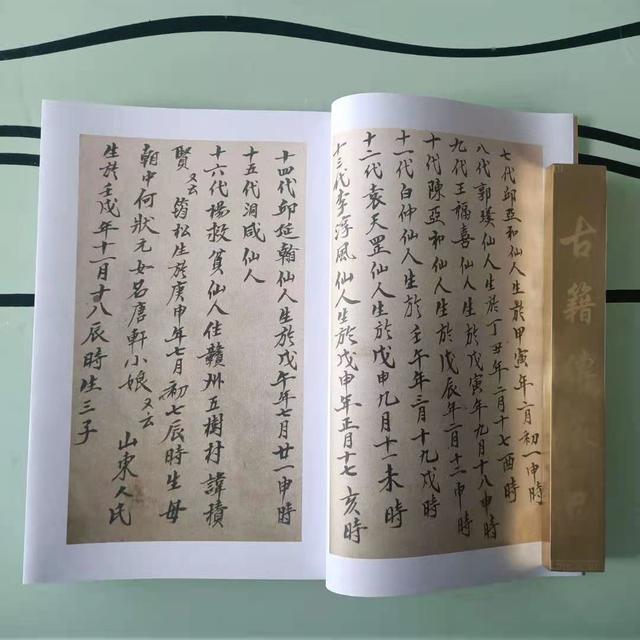 七代邱亞和仙人生於甲寅年二月初一申時
八代郭璞仙人生於丁丑年二月十七酉時
九代王福喜仙人生於戊寅年九月十八申時
十代陳亞和仙人生於戊辰年二月十二申時
十一代白仲仙人生於壬午年三月十九戌時
十二代袁天罡仙人生於戊申九月十一未時
十三代李淳風仙人生於戊申年正月十七亥時
十四代邱延翰仙人生於戊午年七月廿一申時
十五代洞咸仙人
十六代楊救貧仙人住贛州五樹村諱積
賢又云筠松生於庚申年七月初七辰時生母
翰中何狀元女名唐軒小娘又云山東人氏
生於壬戌年十一月十八辰時生三子
古籍傳